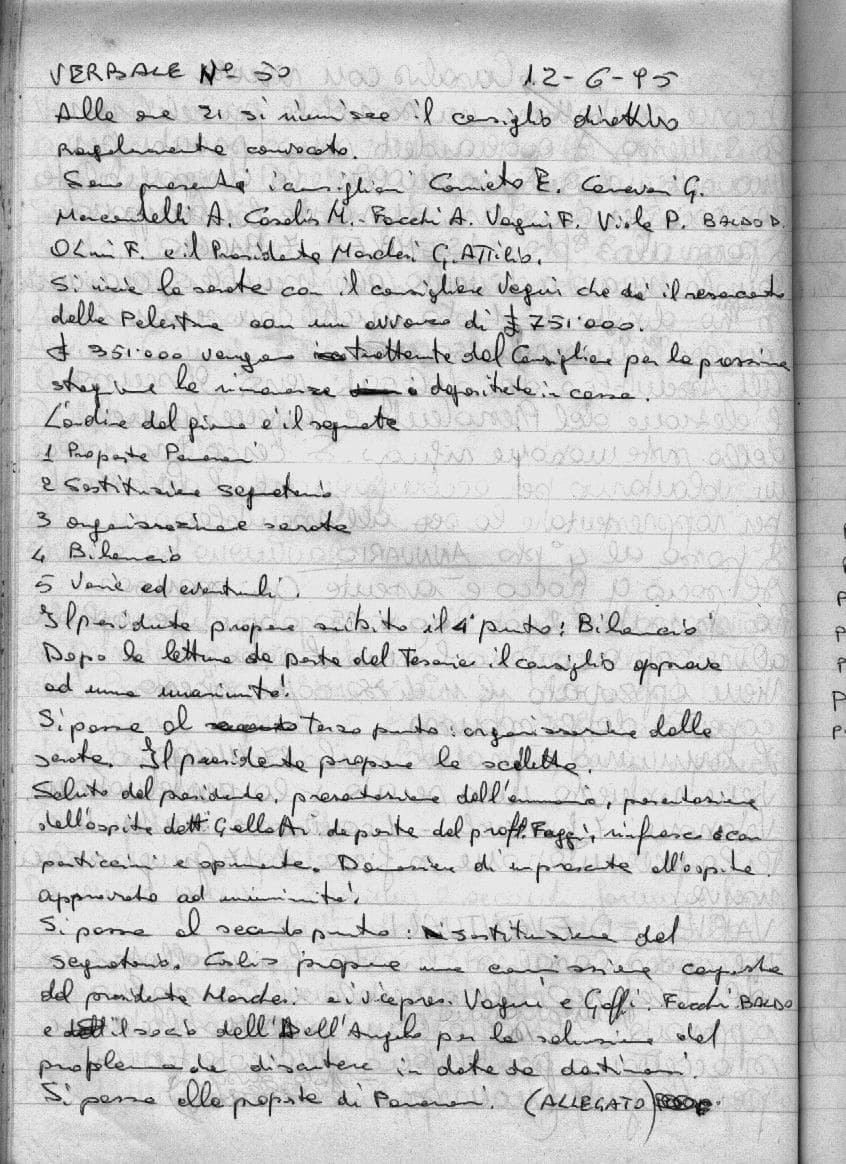 VERBALE Nº 50 12-6-95
Alle ore 21 si riunisce il consiglio direttivo
regolarmente convocato.
Sono presenti i consiglieri Corneto E. Canevari G.
Mercandelli A. Casolis M. Focchi A. Vagui F. Viola P. BALDO D.
OLMI F. e il Presidente Marcheri G. ATTILIO.
Si inizia la serata con il consigliere Vagui che da' il resoconto
della Palestra con un avvanzo di £ 751.000.
£ 351.000 vengono trattenute dal Consigliere per la prossima
stagione la rimanenza è depositata in cassa.
L'ordine del giorno è il seguente
1 Proposte Panarari
2 Sostituzione segretario
3 organizzazione serata
4 Bilancio
5 Varie ed eventuali.
Il presidente propone subito il 4° punto: Bilancio
Dopo la lettura da parte del Tesoriere il consiglio approva
ad una unanimità.
Si passa al terzo punto: organizzazione della
serata. Il presidente propone la scaletta.
Saluto del presidente, presentazione dell'annuario, presentazione
dell'ospite dott. Gellotti da parte del proff. Faggi, rinfresco con
pasticcini e spumante. Donazione di un presente all'ospite.
approvato ad unanimità.
Si passa al secondo punto: sostituzione del
segretario. Casolis propone una commissione composta
dal presidente Marcheri e i vicepres. Vagui e Goffi. Focchi BALDO
e il socio dell'Dell'Angelo per la soluzione del
problema da discutere in data da destinarsi.
Si passa alle proposte di Panarari. (ALLEGATO)